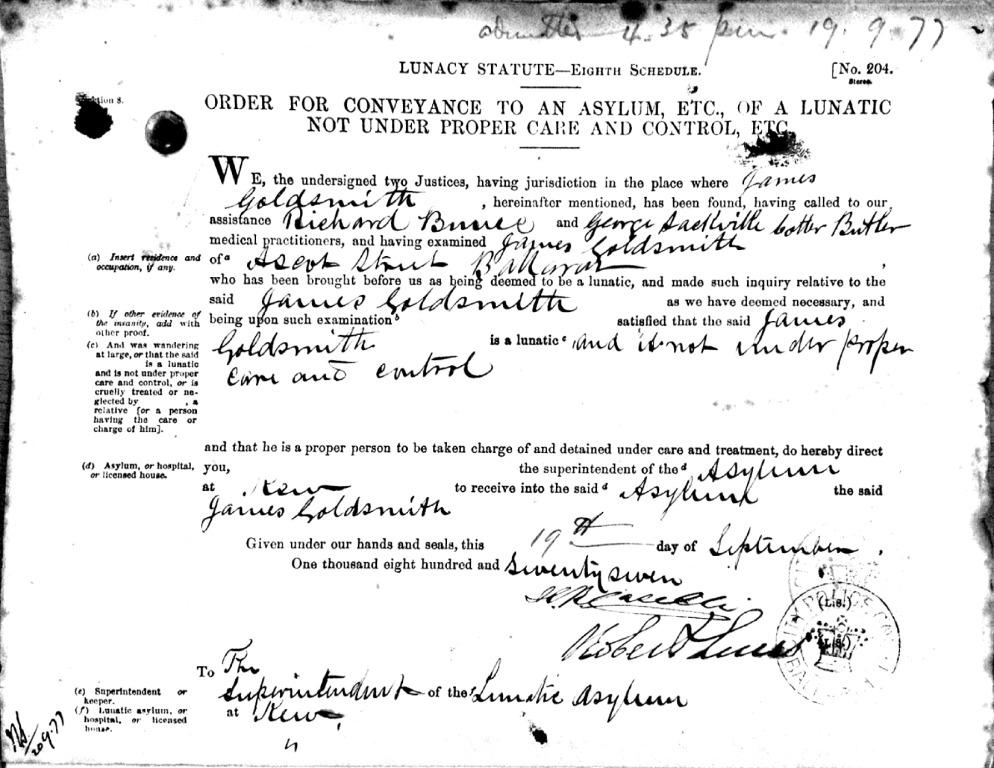 admitted 4.35 pm. 19.9.77
LUNACY STATUTE—EIGHTH SCHEDULE.
[No. 204.
8.
ORDER FOR CONVEYANCE TO AN ASYLUM, ETC., OF A LUNATIC
NOT UNDER PROPER CARE AND CONTROL, ETC.
WE, the undersigned two Justices, having jurisdiction in the place where James
Goldsmith , hereinafter mentioned, has been found, having called to our
assistance Richard Bunce and George Sackville Cotter Butler
medical practitioners, and having examined James Goldsmith
(a) Insert residence and occupation, if any.
of a Ascot Street Ballarat ,
who has been brought before us as being deemed to be a lunatic, and made such inquiry relative to the
said James Goldsmith as we have deemed necessary, and
(b) If other evidence of
the insanity, add with
other proof.
being upon such examination b satisfied that the said James
(c) And was wandering
at large, or that the said
is a lunatic
and is not under proper
care and control, or is
cruelly treated or ne-
glected by , a
relative [or a person
having the care or
charge of him].
Goldsmith is a lunatic c and is not under proper
care and control
and that he is a proper person to be taken charge of and detained under care and treatment, do hereby direct
(d) Asylum, or hospital,
or licensed house.
you, the superintendent of the d Asylum
at Kew to receive into the said d Asylum the said
James Goldsmith
Given under our hands and seals, this 19th day of September .
One thousand eight hundred and Seventy seven
(L.S.)
Robert Lewis (L.S.)
To The
(e) Superintendent or
keeper.
Superintendent of the f Lunatic Asylum
(f) Lunatic asylum, or
hospital, or licensed
house.
at Kew
20.9.77
CITY POLICE